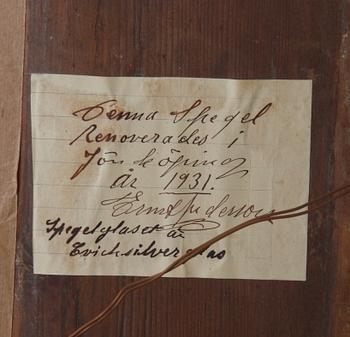 Denna Spegel
Renoverades i
Jönköping
år 1931.
Ernst Andersson
Spegelglaset är
Qvicksilverglas